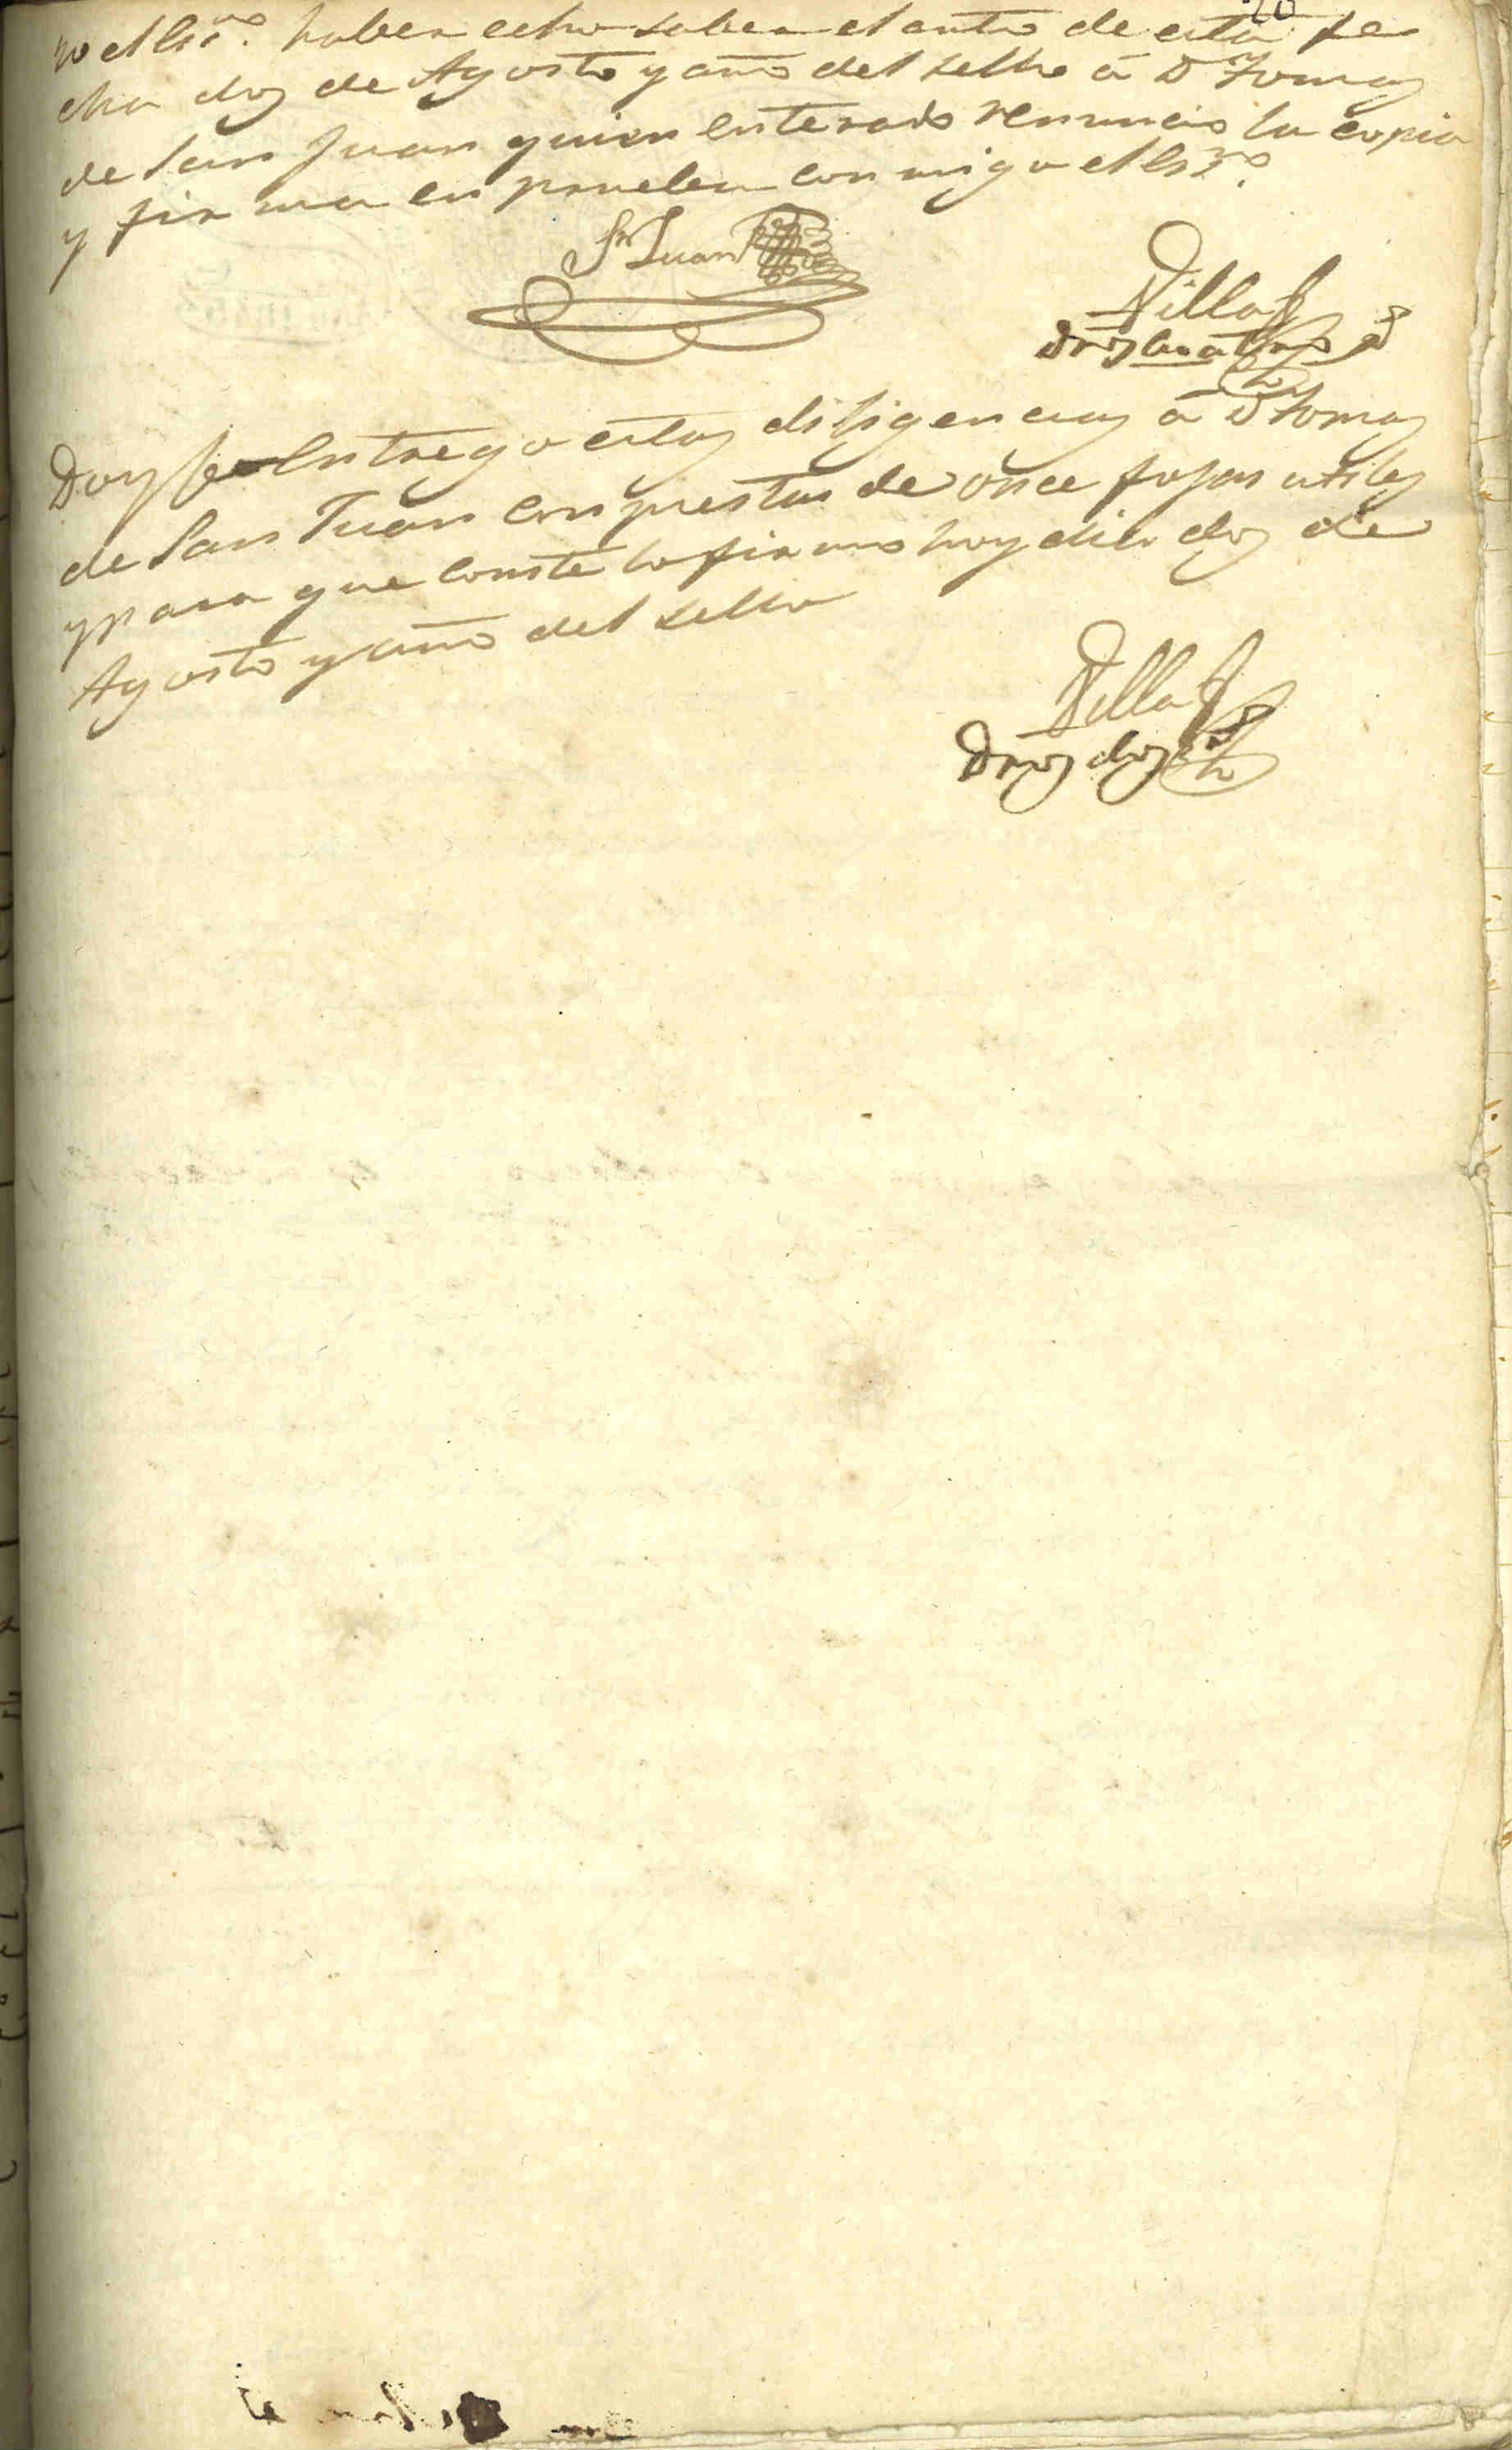 20
yo el Es.no haber echo saber el auto de esta fe
cha dos de Agosto y año del sello á Dn Tomas
de San Juan quien enterado renuncio la copia
y firma en prueba con migo el Es.no
Sn Juan
Villa
Dros cuatro rs
Doy fe Entrego estas diligencias á Dn Tomas
de San Juan conpuestas de once fojas utiles
y para que conste lo firmo hoy dia dos de
Agosto y año del sello
Villa
Dros dos rs